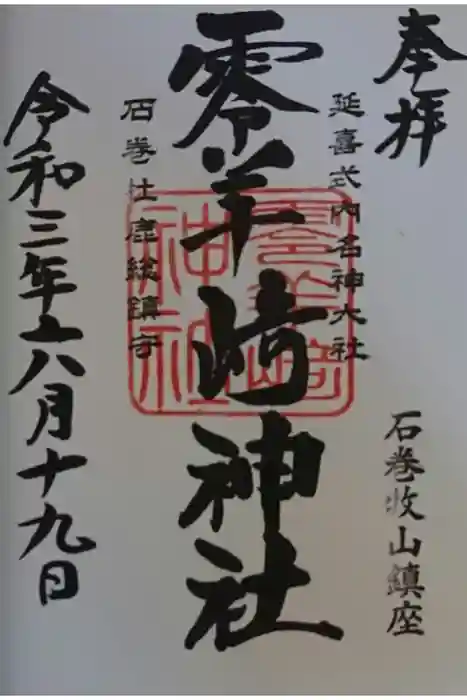 奉拝
延喜式内名神大社
石巻牧山鎮座
零羊崎神社
石巻牡鹿総鎮守
令和三年八月十九日